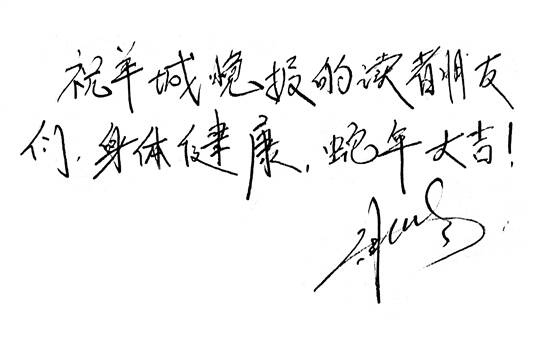 祝羊城晚报的读者朋友
们，身体健康，蛇年大吉！